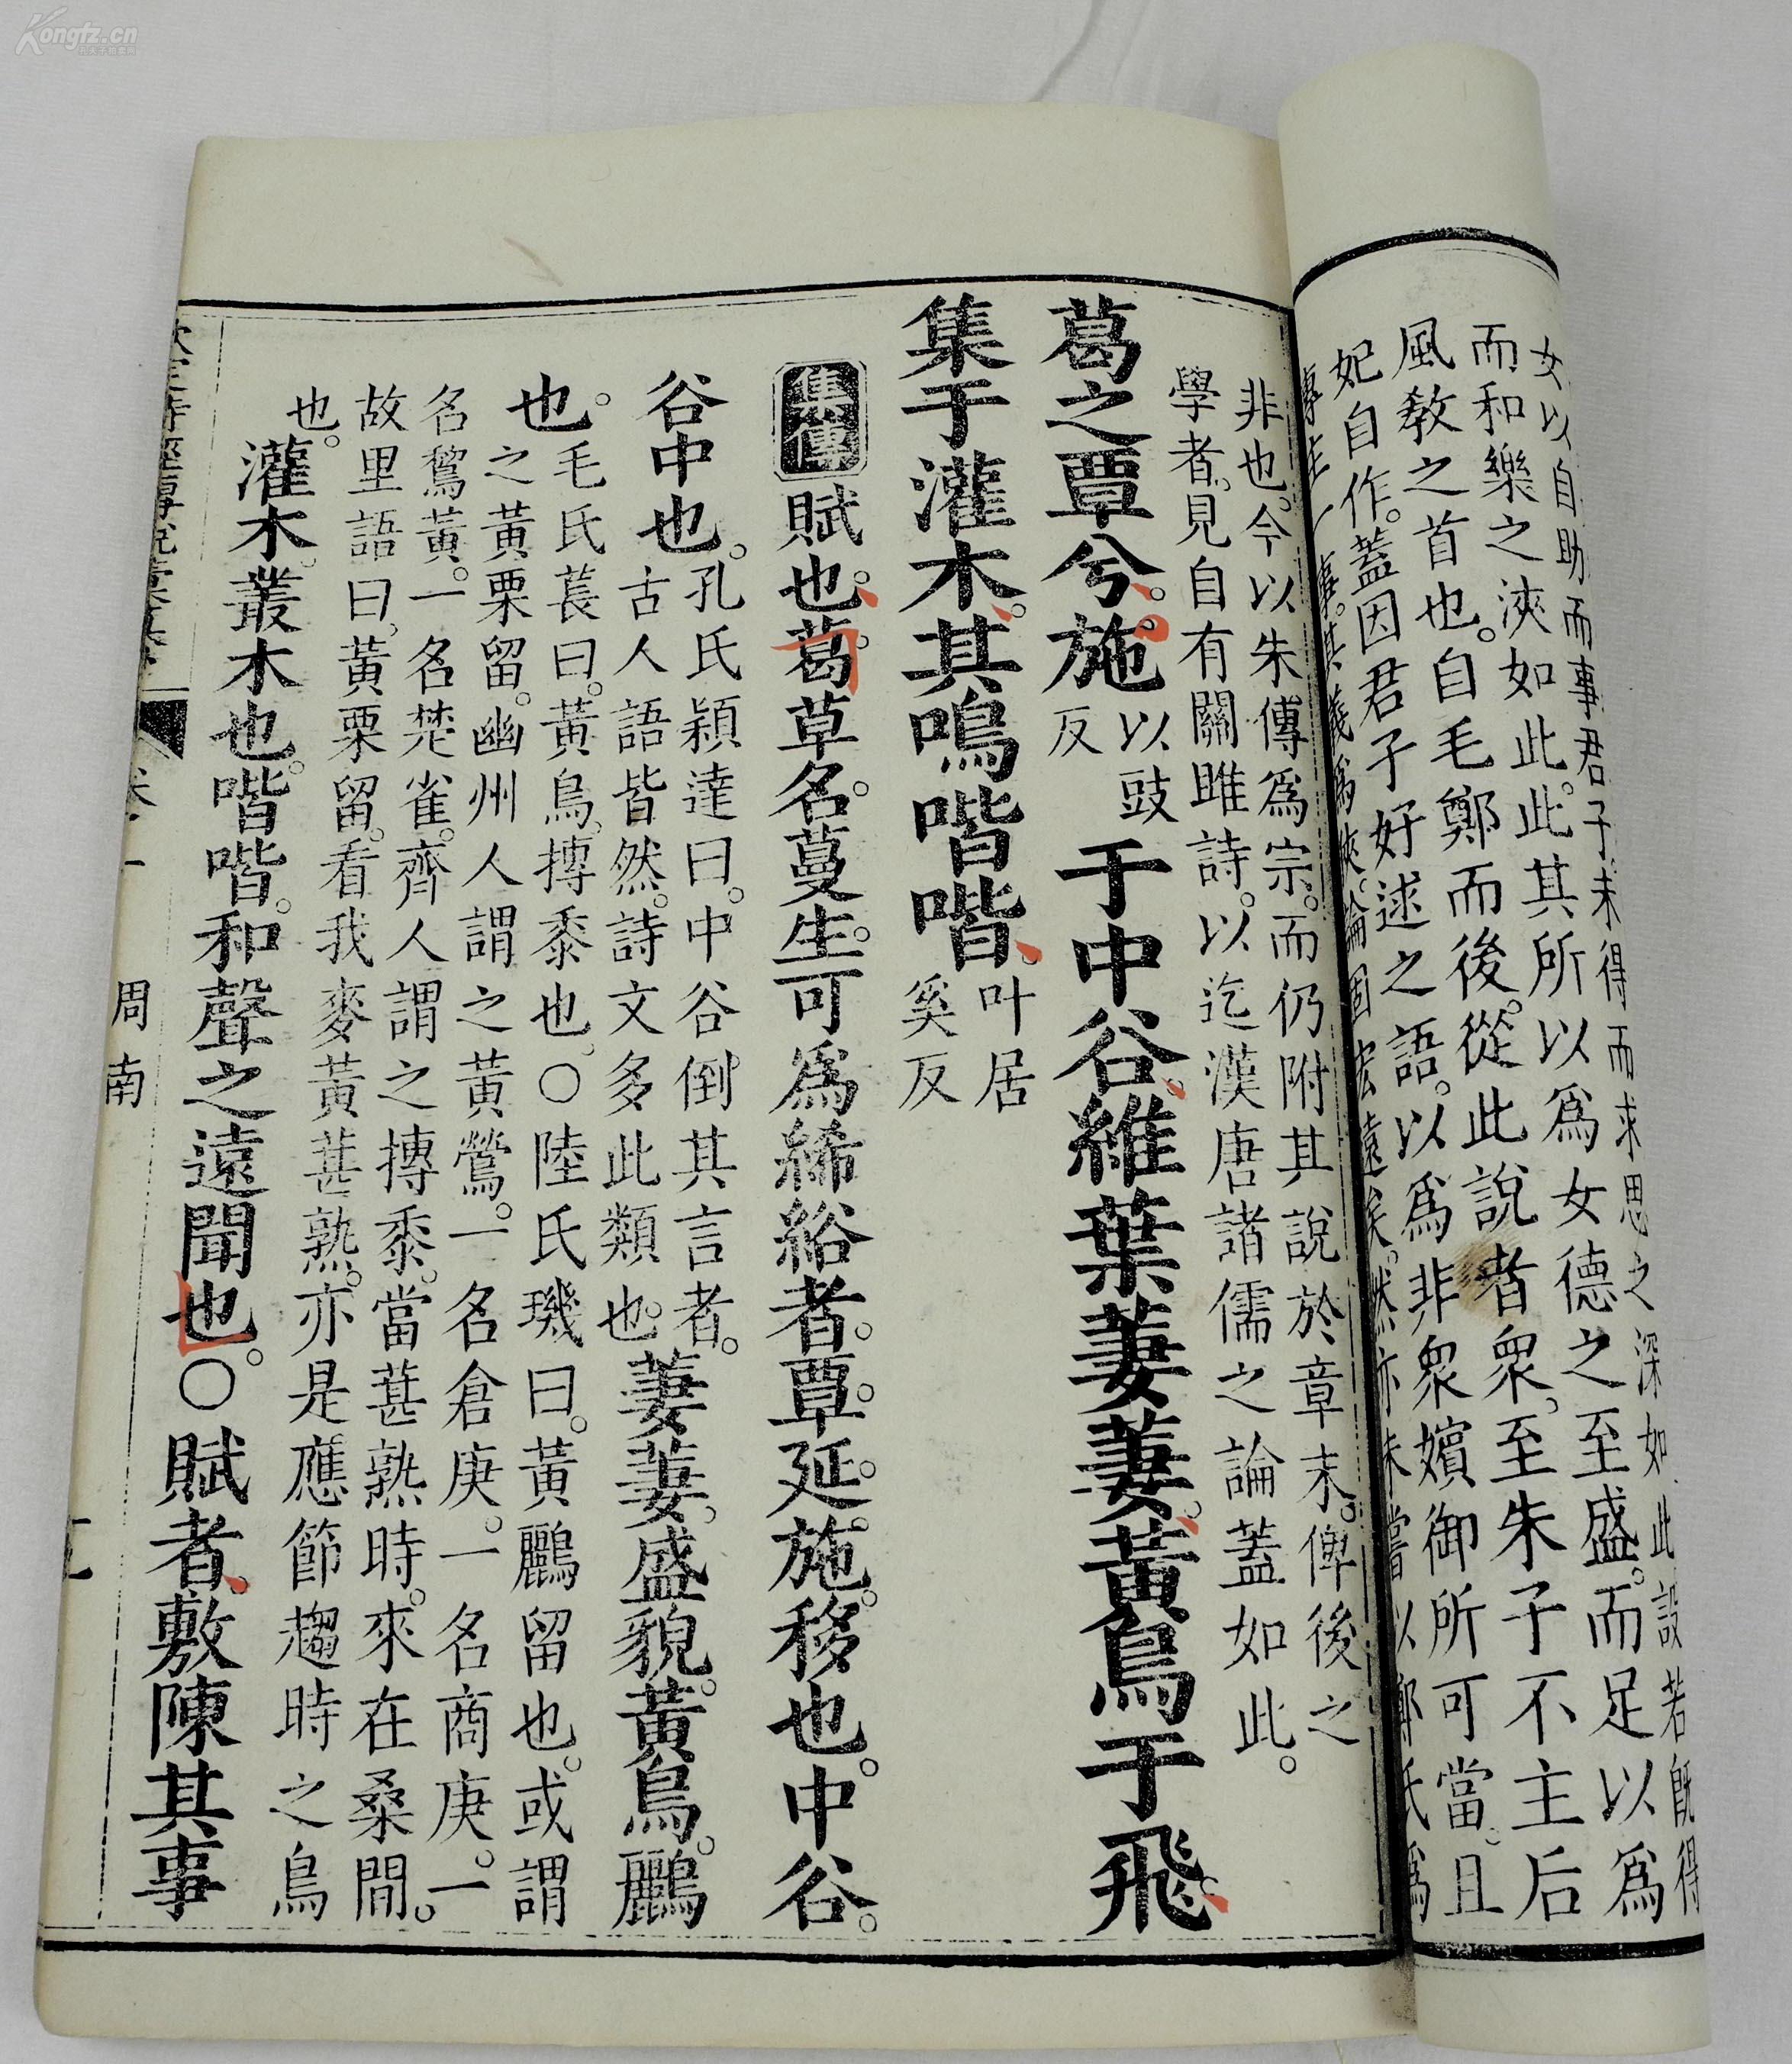 女以自助而事君子未得而求思之深如此設若既得
而和樂之浹如此。此其所以爲女德之至盛。而足以爲
風教之首也。自毛鄭而後。從此說者衆。至朱子不主后
妃自作。蓋因君子好逑之語。以爲非衆嬪御所可當。且
事。其義爲狹。論固宏遠矣。然亦未嘗以鄭氏爲
非也。今以朱傳爲宗。而仍附其說於章末。俾後之
學者。見自有關雎詩。以迄漢唐諸儒之論蓋如此。
葛之覃兮。施以豉反于中谷。維葉萋萋。黃鳥于飛。
集于灌木。其鳴喈喈。叶居奚反
集傳賦也。葛。草名。蔓生。可爲絺綌者。覃。延。施。移也。中谷。
谷中也。孔氏穎達曰。中谷。倒其言者。
古人語皆然。詩文多此類也。萋萋。盛貌。黃鳥。鸝
也。毛氏萇曰。黃鳥。摶黍也。○陸氏璣曰。黃鸝留也。或謂
之黃栗留。幽州人謂之黃鶯。一名倉庚。一名商庚。一
名鵹黃。一名楚雀。齊人謂之摶黍。當葚熟時。來在桑間。
故里語曰。黃栗留。看我麥黃葚熟。亦是應節趨時之鳥
也。灌木。叢木也。喈喈。和聲之遠聞也。○賦者。敷陳其事
周南
Kongfz.cn